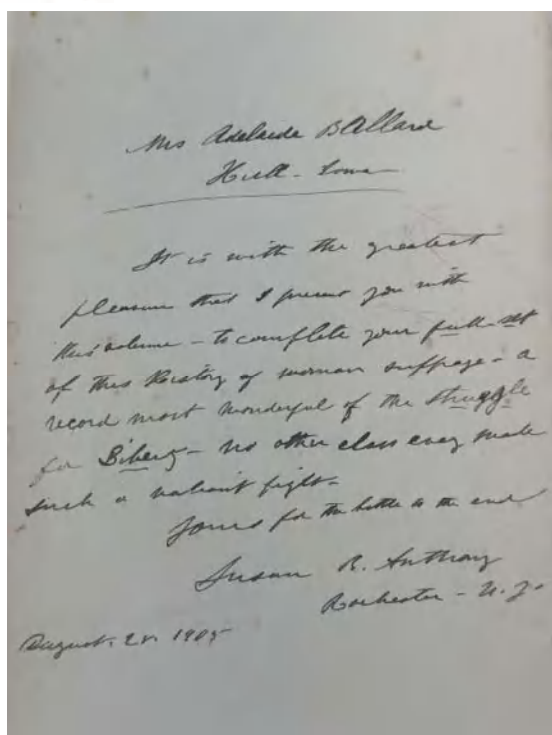 Mrs Adelaide Ballard
Hull - Iowa
It is with the greatest
pleasure that I present you with
this volume - to complete your full set
of this History of woman suffrage - a
record most wonderful of the struggle
for Liberty - no other class ever made
such a valiant fight -
Yours for the battle to the end
Susan B. Anthony
Rochester - N. Y.
August 1905